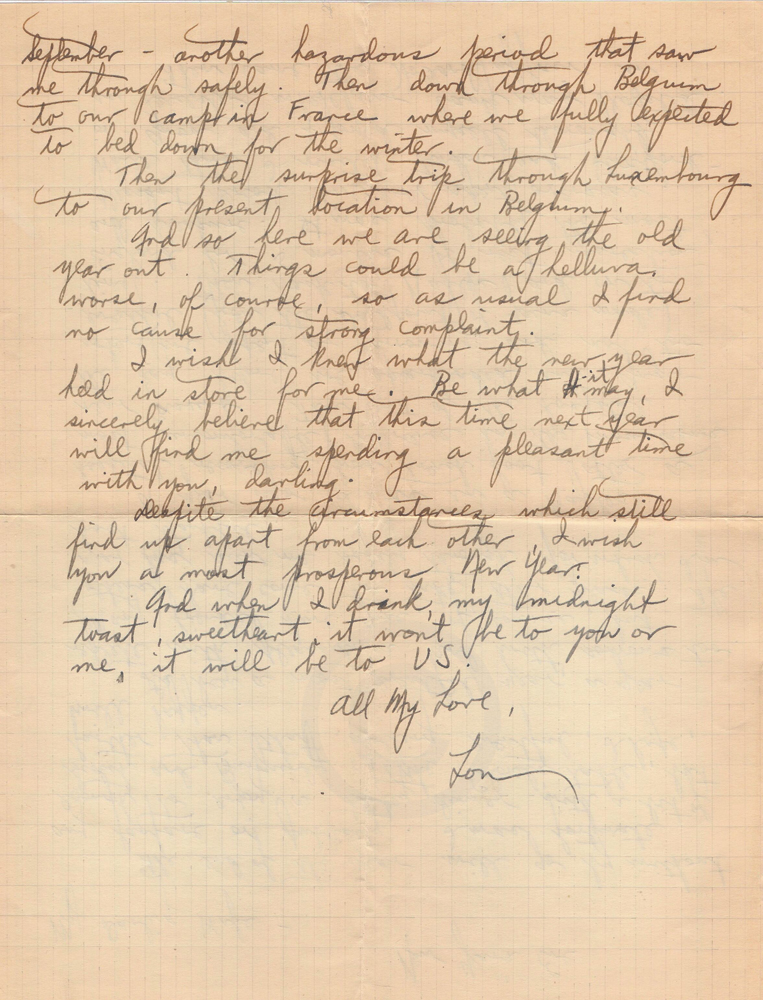 September - another hazardous period that saw
me through safely. Then down through Belgium
to our camp in France where we fully expected
to bed down for the winter.
Then the surprise trip through Luxembourg
to our present location in Belgium.
And so here we are seeing the old
year out. Things could be a helluva
worse, of course, so as usual I find
no cause for strong complaint.
I wish I knew what the new year
held in store for me. Be what it may, I
sincerely believe that this time next year
will find me spending a pleasant time
with you, darling.
Despite the circumstances which still
find us apart from each other, I wish
you a most prosperous New Year.
And when I drink my midnight
toast, sweetheart, it won't be to you or
me, it will be to US.
All My Love,
Lon